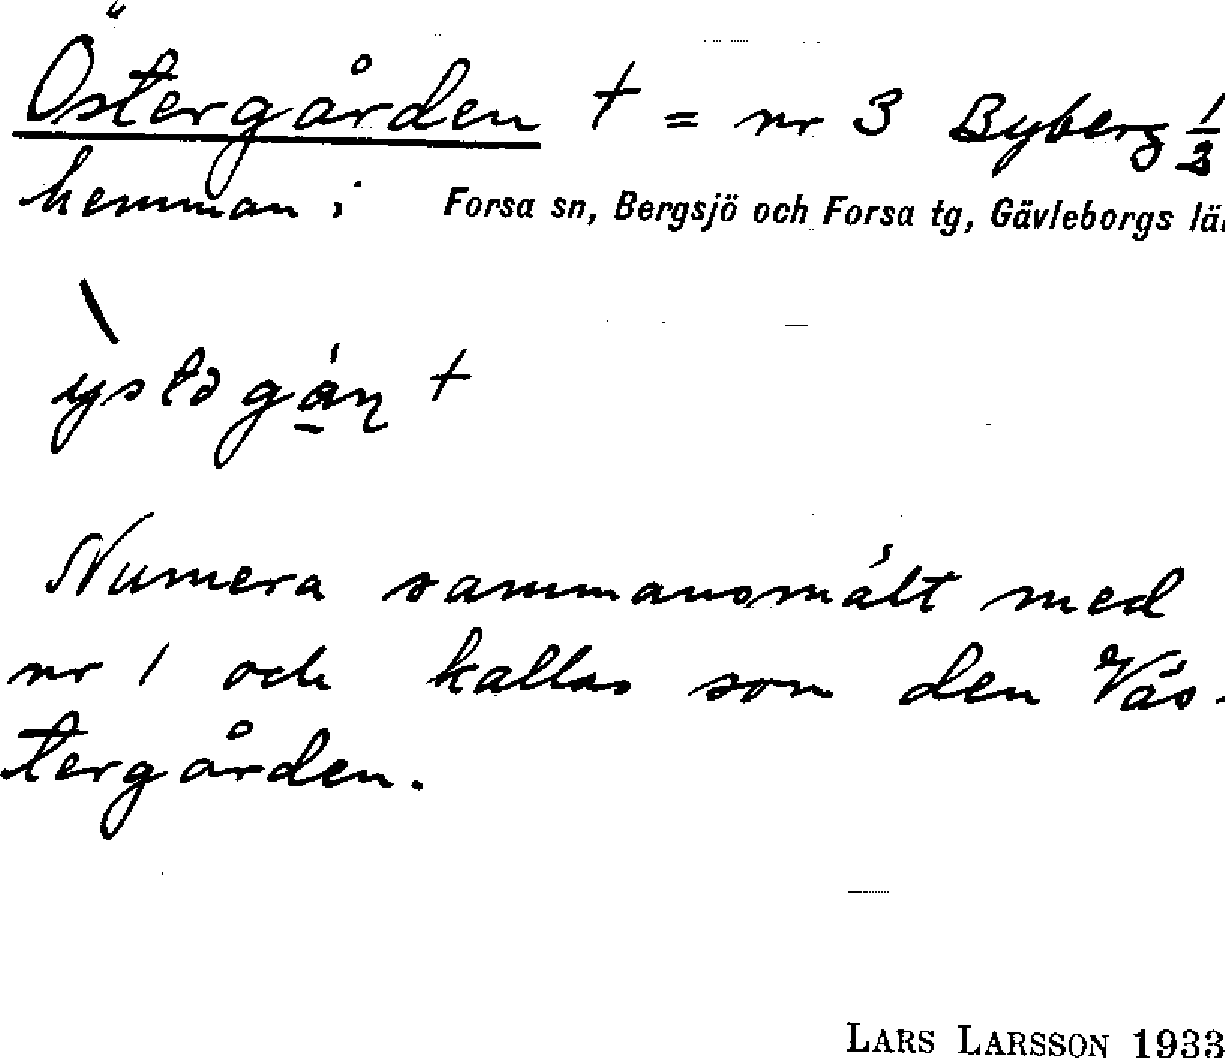 Östergården † = nr 3 Byberg 1/3
hemman i Forsa sn, Bergsjö och Forsa tg, Gävleborgs lä
Numera sammansmält med
nr 1 och kallas som den Väs-
tergården.
LARS LARSSON 1933